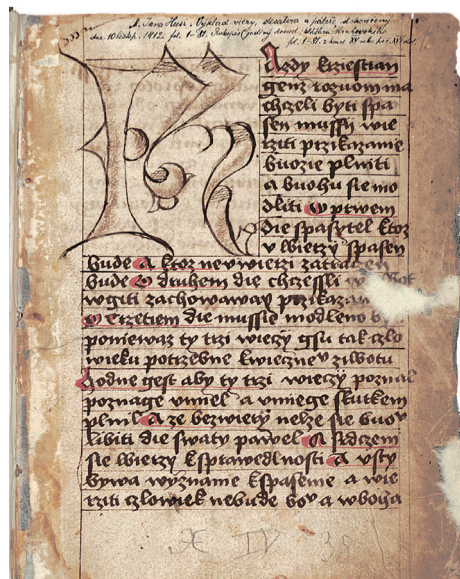 M. Jana Husi. Výklad viery, desatera a páteře dokončený
dne 10 listop. 1412. fol. 1-81.
fol. 1-81. z konce XV
K
Azdy krziestian
genz rozvom ma
chzeli byti spa
sen mussy wie
rziti przikazanie
buozie plniti
a buohu sie mo
dliti O prwem
die spasytel ktoz
v wierzy spasen
bude A ktoz newierzi zatraczen
bude O druhem die chzessli w
wgiti zachowaway przikazan
O trzetiem die mussie modleno by
poniewaz ty trzi wieczy gsu tak czlo
wieku potrzebne kwieczne v ziwotu
hodne gest aby ty trzi wieczy poznal
poznage vmiel a vmiege skutkem
plnil A ze bezwiery nelze sie buov
libiti die swaty pawel A srdczem
sie wierzy ksprawedlnosti A vsty
bywa wyznanie kspasenie a wie
rziti czlowiek nebude bov a wboha
IV
38